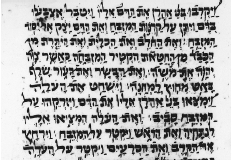 ויקרבו בני אהרן את הדם אליו ויטבל אצבעו
בדם ויתן על קרנות המזבח ואת הדם יצק אל יסוד
המזבח ואת החלב ואת הכלית ואת היתרת מן
הכבד מן החטאת הקטיר המזבחה כאשר צוה
יהוה את משה ואת הבשר ואת העור שרף
באש מחוץ למחנה וישחט את העלה
וימצאו בני אהרן אליו את הדם ויזרקהו על
המזבח סביב ואת העלה המציאו אליו
לנתחיה ואת הראש ויקטר על המזבח וירחץ
את הקרב ואת הכרעים ויקטר על העלה